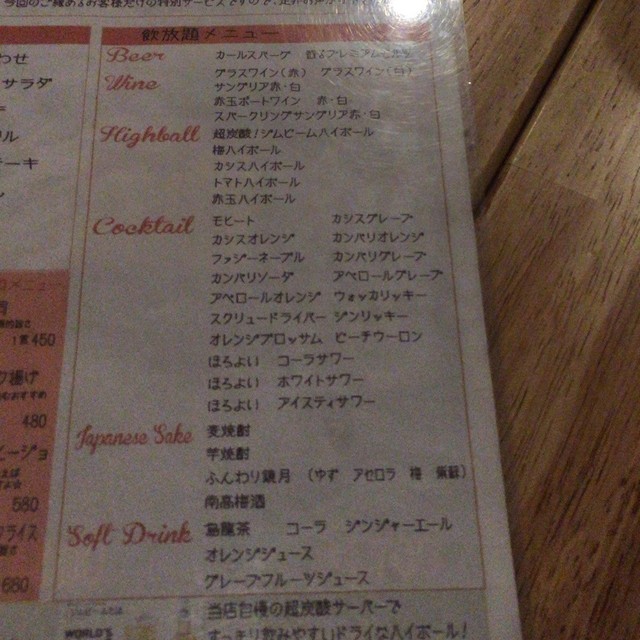 今回のご縁あるお客様だけの特別サービスですので、
飲放題メニュー
Beer カールスバーグ 香るプレミアム
Wine グラスワイン(赤) グラスワイン(白)
サングリア赤・白
赤玉ポートワイン 赤・白
スパークリングサングリア赤・白
Highball 超炭酸!ジムビームハイボール
梅ハイボール
カシスハイボール
トマトハイボール
赤玉ハイボール
Cocktail モヒート カシスグレープ
カシスオレンジ カンパリオレンジ
ファジーネーブル カンパリグレープ
カンパリソーダ アペロールグレープ
アペロールオレンジ ウォッカリッキー
スクリュードライバー ジンリッキー
オレンジブロッサム ピーチウーロン
ほろよい コーラサワー
ほろよい ホワイトサワー
ほろよい アイスティサワー
Japanese Sake 麦焼酎
芋焼酎
ふんわり鏡月 (ゆず アセロラ 梅 紫蘇)
南高梅酒
Soft Drink 烏龍茶 コーラ ジンジャーエール
オレンジジュース
グレープフルーツジュース
WORLD'S
当店自慢の超炭酸サーバーで
すっきり飲みやすいドライなハイボール!
わせ
サラダ
ーキ
メニュー
1貫 450
揚げ
おすすめ
480
ージョ
580
ライス
680